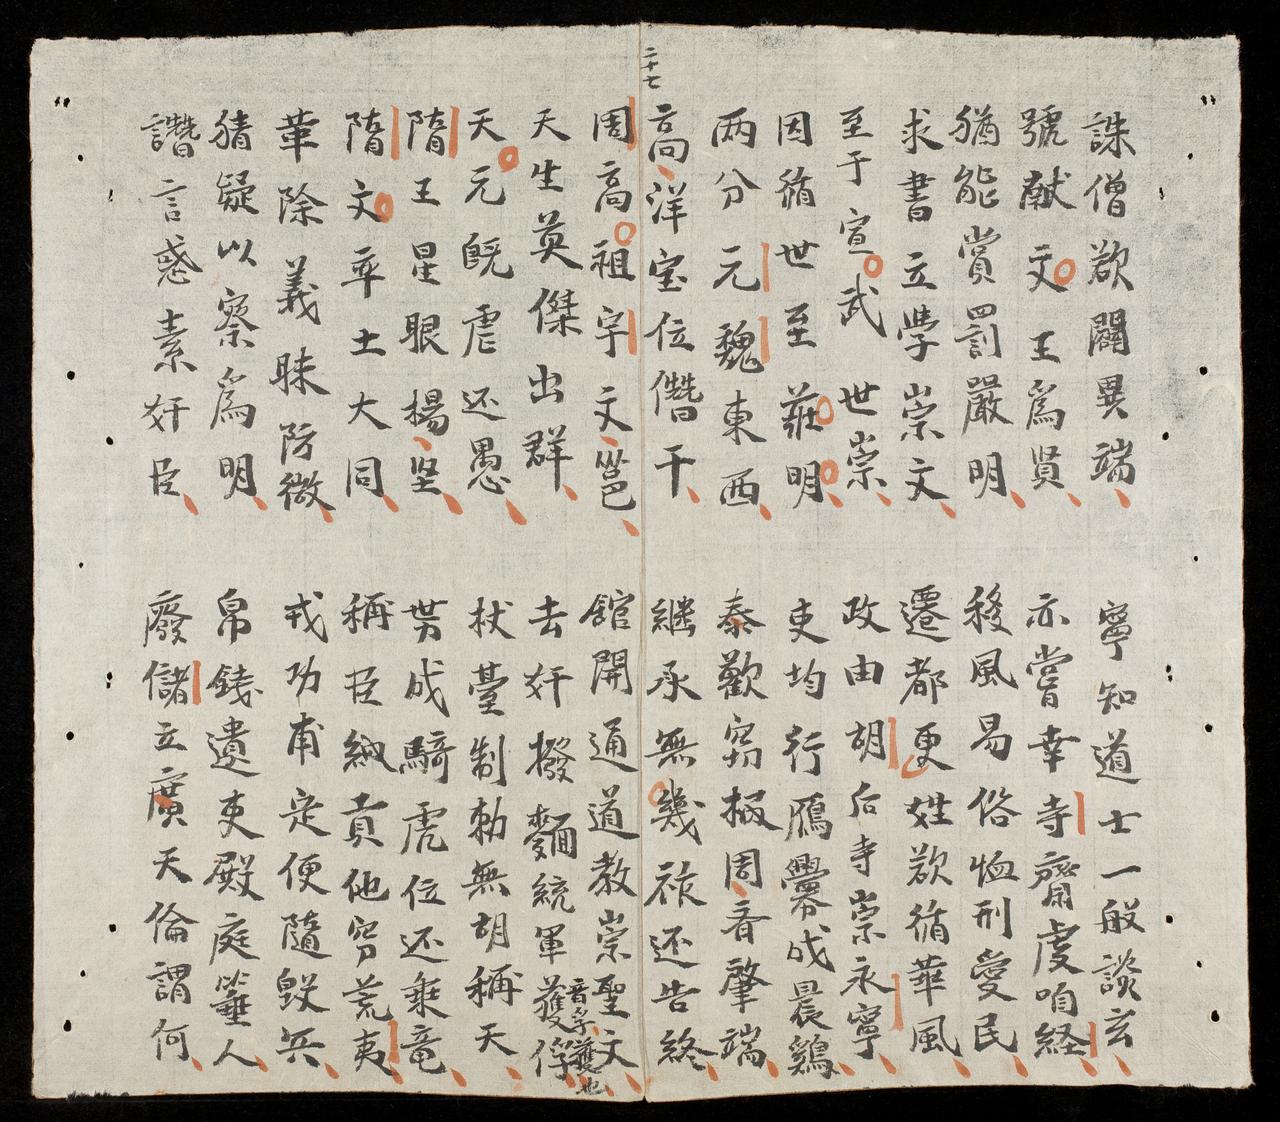 誅僧欲闢異端
寧知道士一般談玄
號献文王為賢
亦嘗幸寺齋虔咱経
猶能賞罰嚴明
移風易俗恤刑愛民
求書立學崇文
遷都更姓欲循華風
至于宣武世崇
政由胡后寺崇永寧
因循世至莊明
吏均行鴈爨成晨鷄
两分元魏東西
泰歡窃柄周斉肇端
二十七
高洋宝位僭干
継承無幾祚还告終
周高祖宇文邕
館開通道教崇聖文
天生英傑出群
去奸撥麵統軍獲俘
音孚獲也
天元既虐还愚
杖臺制勅無胡稱天
隋王星眼楊坚
势成騎虎位还乘竜
隋文率土大同
稱臣納貢他穷荒夷
革除義昧防微
戎功甫定便隨毀兵
猜疑以察為明
帛錢遺吏殿庭箠人
譖言惑素奸臣
廢儲立廣天倫謂何